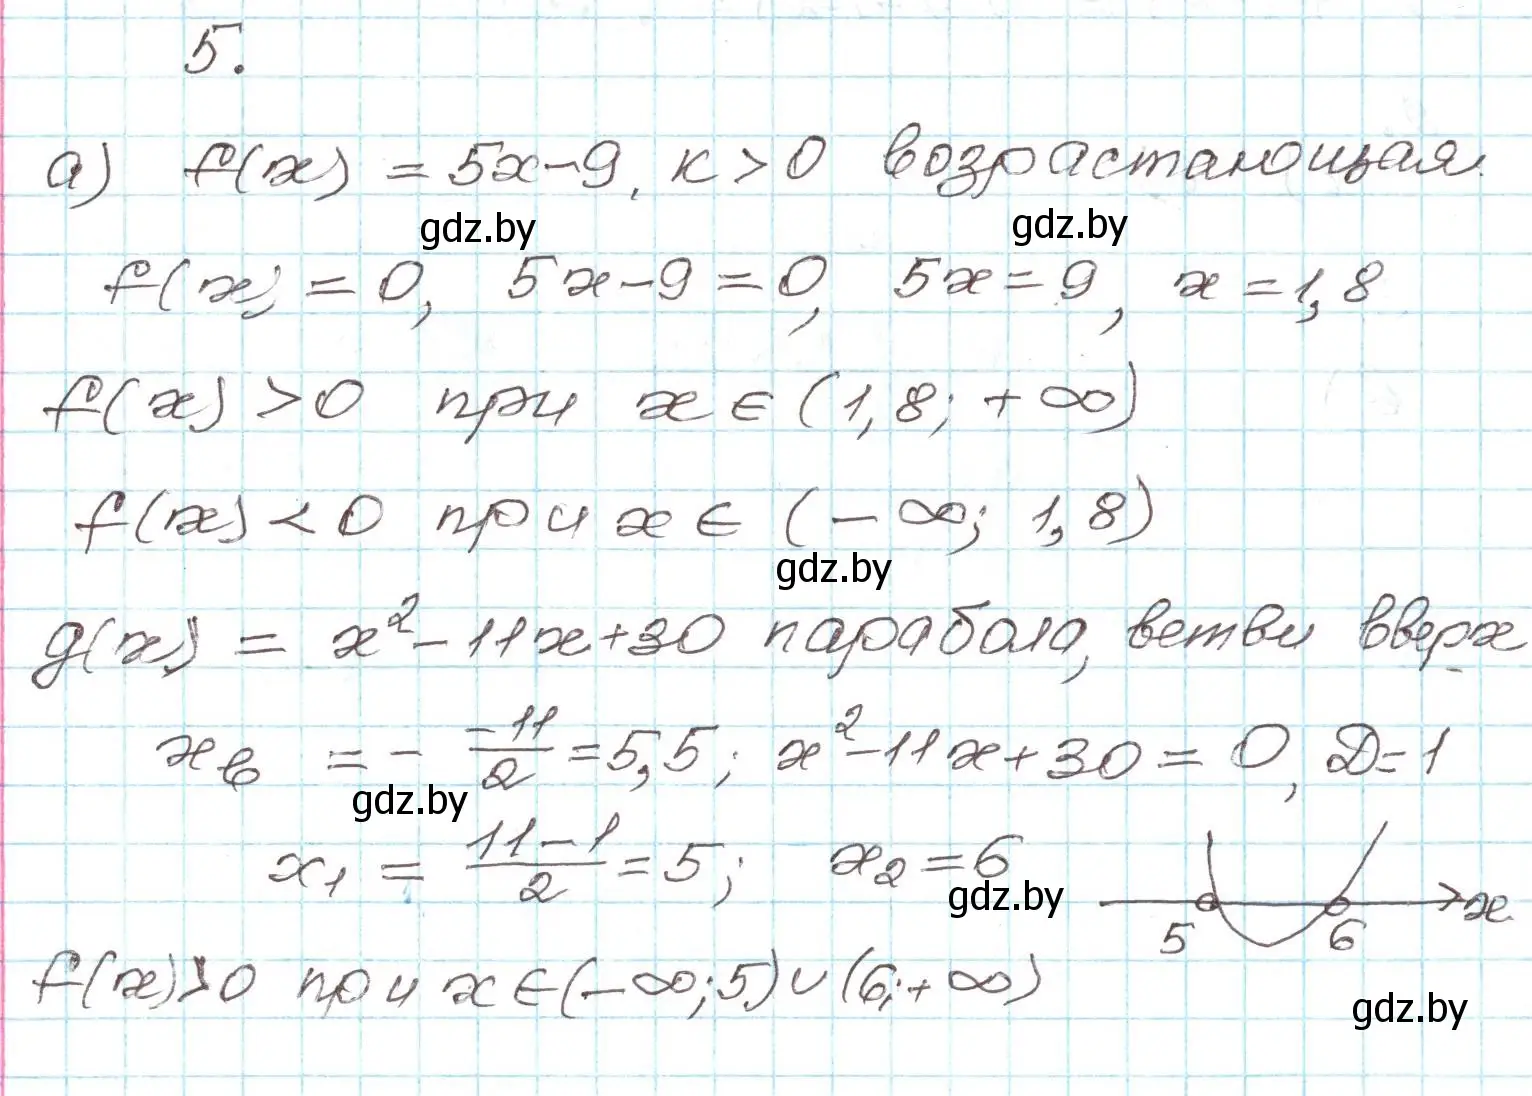 5.
а) f(x) = 5x-9, к>0 возрастающая.
gdz.by gdz.by
f(x) = 0, 5x-9=0, 5x=9, x=1,8
f(x) >0 при x∈(1,8; +∞)
f(x) <0 при x∈ (-∞; 1,8)
gdz.by
g(x) = x²-11x+30 парабола, ветви вверх
xв = - -11/2 =5,5; x²-11x+30=0, D=1
gdz.by
x₁ = 11-1/2 =5; x₂=6
gdz.by
5 6 x
f(x)>0 при x∈(-∞;5)∪(6;+∞)
gdz.by